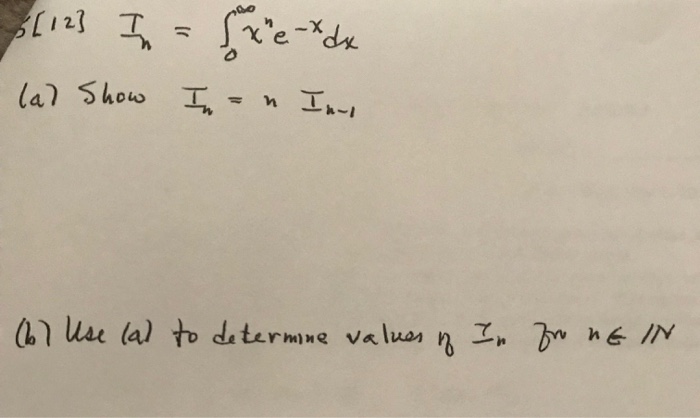 5[12] Iₙ = ∫₀^∞ xⁿe⁻ˣdx
(a) Show Iₙ = n Iₙ₋₁
(b) Use (a) to determine values of Iₙ for n ∈ ℕ